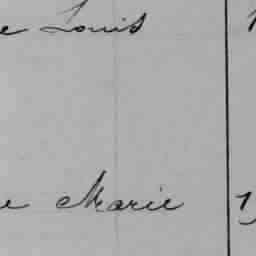 e Louis 1
e Marie 1